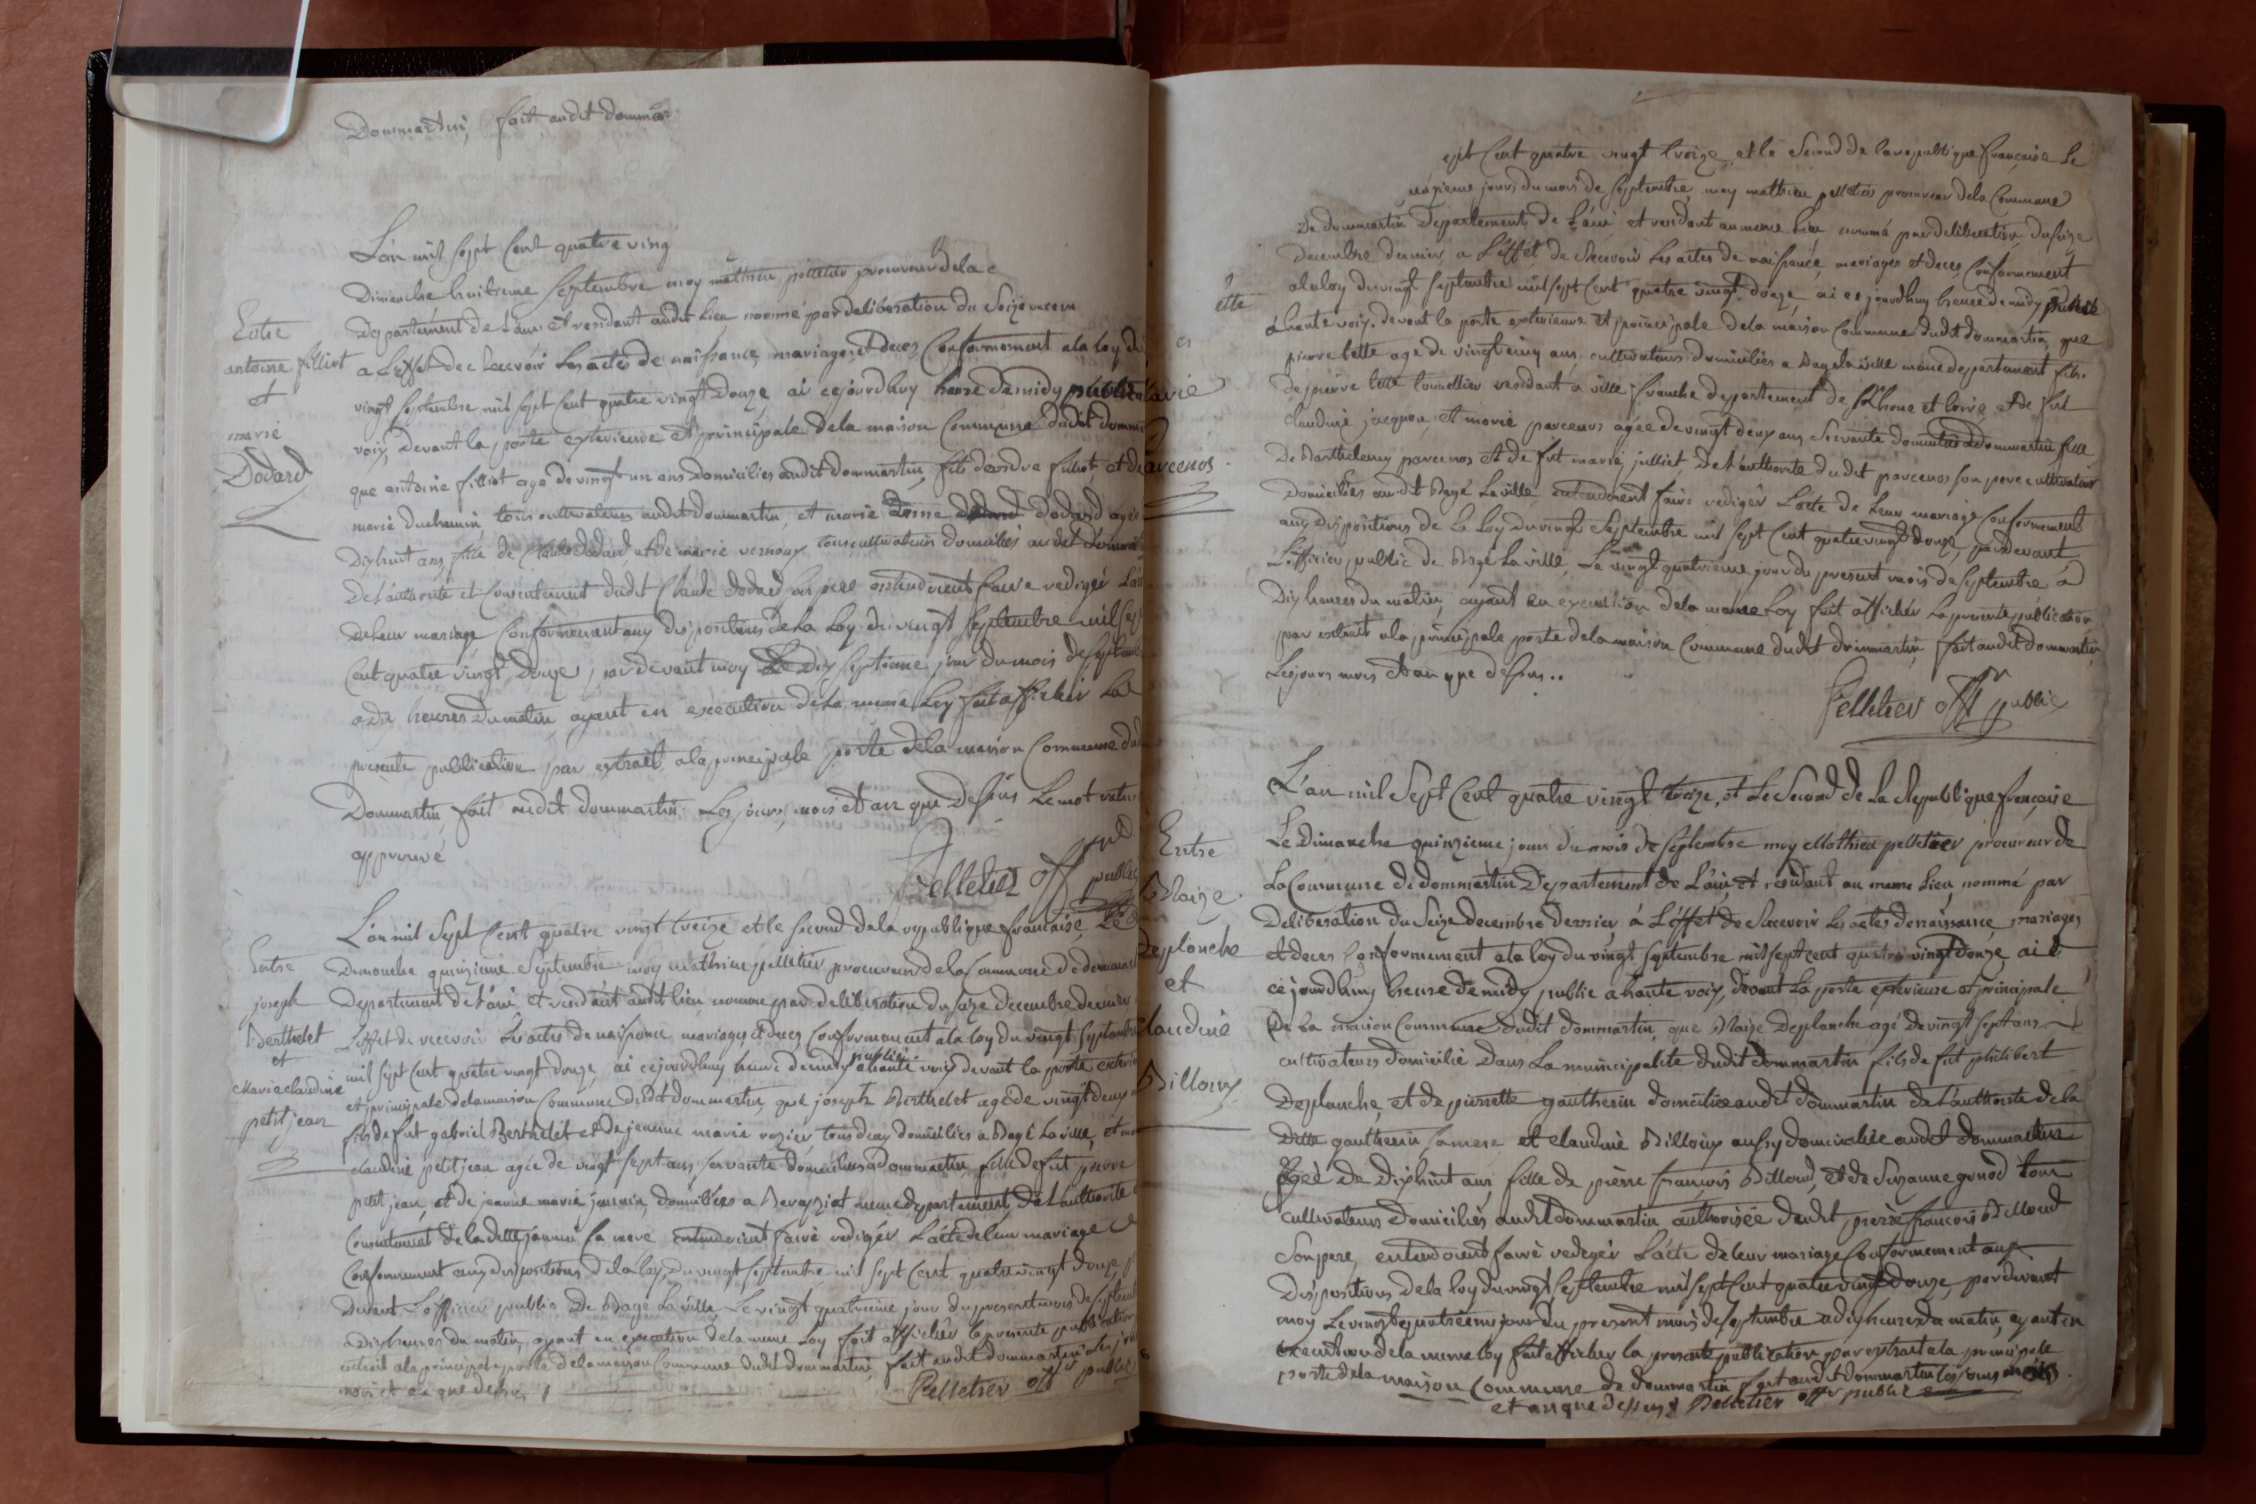 Dommartin, fait audit dommar
L'an mil sept Cent quatre ving
Dimanche huitieme Septembre moy mathieu pelletier procureur de la c
Entre
antoine filliot
et
marie
Dodard
Departement de L'ain et residant audit Lieu nommé par deliberation du Seize decem
a L'effet de recevoir Les actes de naissance, mariages et deces Conformement a la Loy du
vingt Septembre mil sept Cent quatre vingt Douze ai cejourdhuy heure de midy publié
voix, Devant la porte exterieure et principale de la maison Commune dudit domma
que antoine filliot age de vingt un ans Domicilies audit dommartin, fils de filliot, et de
marie duchemin tous cultivateurs audit dommartin, et marie Dodard agée
Dixhuit ans, fille de Claude dodard, et de marie vernoux tous cultivateurs domiciliés audit dommar
De L'authorité et Consentement dudit Claude dodard son pere entendoient faire rediger L'ac
de Leur mariage Conformement aux dispositions de La Loy du vingt Septembre mil sep
Cent quatre vingt Douze, par devant moy Le Dix Septieme jour du mois de Septem
a dix heures du matin, ayant en execution de La meme Loy fait afficher La
presente publication par extrait a la principale porte de la maison Commune du
Dommartin, fait audit dommartin Les jours, mois et an que Dessus Le mot
approuvé
Pelletier off public
L'an mil Sept Cent quatre vingt treize et le Second de la republique francaise, Le
Entre
joseph
Berthelet
et
Marie claudine
petit jean
Dimanche quinzieme Septembre moy mathieu pelletier procureur de la Commune de dommart
Departement de L'ain et residant audit lieu nommé par deliberation du Seize decembre dernier
L'effet de recevoir Les actes de naissance mariages et deces Conformement a la loy du vingt Septembre
mil Sept Cent quatre vingt douze, ai cejourdhuy heure de midy publié a haute voix devant la porte exterie
et principale de la maison Commune dudit dommartin, que joseph Berthelet age de vingt deux
fils de fut gabriel Berthelet et de jeanne marie rozier tous deux domiciliés a Bagé la ville, et
claudine petit jean agée de vingt Sept ans servante domiciliée a Dommartin, fille de fut pierre
petit jean, et de jeanne marie domiciliés a meme departement, de L'authorité
Consentement de la dette Sa mere entendoient faire rediger L'acte de leur mariage
Conformement aux dispositions de la loy du vingt Septembre mil Sept Cent quatre vingt douze, p
devant L'officier public de Bagé La ville Le vingt quatrieme jour du present mois de Septem
a dix heures du matin, ayant en execution de la meme Loy fait afficher la presente publication
extrait a la principale porte de la maison Commune dudit dommartin, fait audit dommartin Les jours
mois et an que dessus
Pelletier off public
ept Cent quatre vingt treize, et le Second de la republique francaise Le
jour du mois de Septembre, moy mathieu pelletier procureur de la Commune
De dommartin Departement de L'ain et residant au meme Lieu nommé par deliberation du Seize
decembre dernier a L'effet de Recevoir Les actes de naissance, mariages et deces Conformement
a la loy du vingt Septembre mil sept Cent quatre vingt Douze, ai cejourdhuy heure de midy publié
ette
a haute voix, devant la porte exterieure et principale de la maison Commune dudit dommartin, que
pierre age de vingt cinq ans cultivateurs domiciliés a Bagé la ville meme departement fils
de pierre residant a ville franche departement de Rhone et loire et de fut
claudine et marie parcenos agée de vingt deux ans Servante domiciliée a dommartin fille
De Barthelemy parcenos et de fut marie julliet de L'authorité dudit parcenos Son pere cultivateur
arcenos
Domiciliés audit Bagé La ville, entendoient faire rediger L'acte de Leur mariage Conformement
aux dispositions de la Loy du vingt Septembre mil Sept Cent quatre vingt douze, par devant
L'officier public de Bagé La ville, Le vingt quatrieme jour du present mois de Septembre a
Dix heures du matin, ayant en execution de la meme Loy fait afficher La presente publication
par extrait a la principale porte de la maison Commune dudit dommartin, fait audit dommartin
Les jours mois et an que dessus..
Pelletier off public
L'an mil Sept Cent quatre vingt treize, et Le Second de La Republique francaise
Entre
Blaize
Deplanche
et
claudine
Billoux
Le Dimanche quinzieme jour du mois de Septembre moy Mathieu pelletier procureur de
La Commune de dommartin Departement de L'ain, et residant au meme Lieu, nommé par
Deliberation du Seize decembre dernier, à L'effet de Recevoir Les actes de naissance, mariages
et deces Conformement a la loy du vingt Septembre mil sept cent quatre vingt douze, ai
ce jourdhuy heure de midy publié a haute voix, devant La porte exterieure et principale
De La maison Commune Dudit dommartin, que Blaize Deplanche agé De vingt Sept ans
cultivateurs domicilié Dans La municipalité dudit dommartin fils de fut philibert
Deplanche, et de pierrette gautherin domiciliée audit dommartin de L'authorité de la
Dette gautherin, sa mere et claudine Billoux aussy domiciliée audit dommartin
Agée De Dixhuit ans, fille de pierre françois Billoud, et de Suzanne gonod tous
cultivateurs domiciliés audit dommartin authorisée dudit pierre françois Billoud
Son pere, entendoient faire rediger L'acte de leur mariage Conformement aux
Dispositions de la loy du vingt Septembre mil Sept Cent quatre vingt Douze, par devant
moy Le vingt quatrieme jour du present mois de Septembre a dix heures du matin, ayant en
execution de la meme loy fait afficher la presente publication par extrait a la principale
porte de la maison Commune de dommartin fait audit dommartin les jours mois
et an que dessus Pelletier offr public